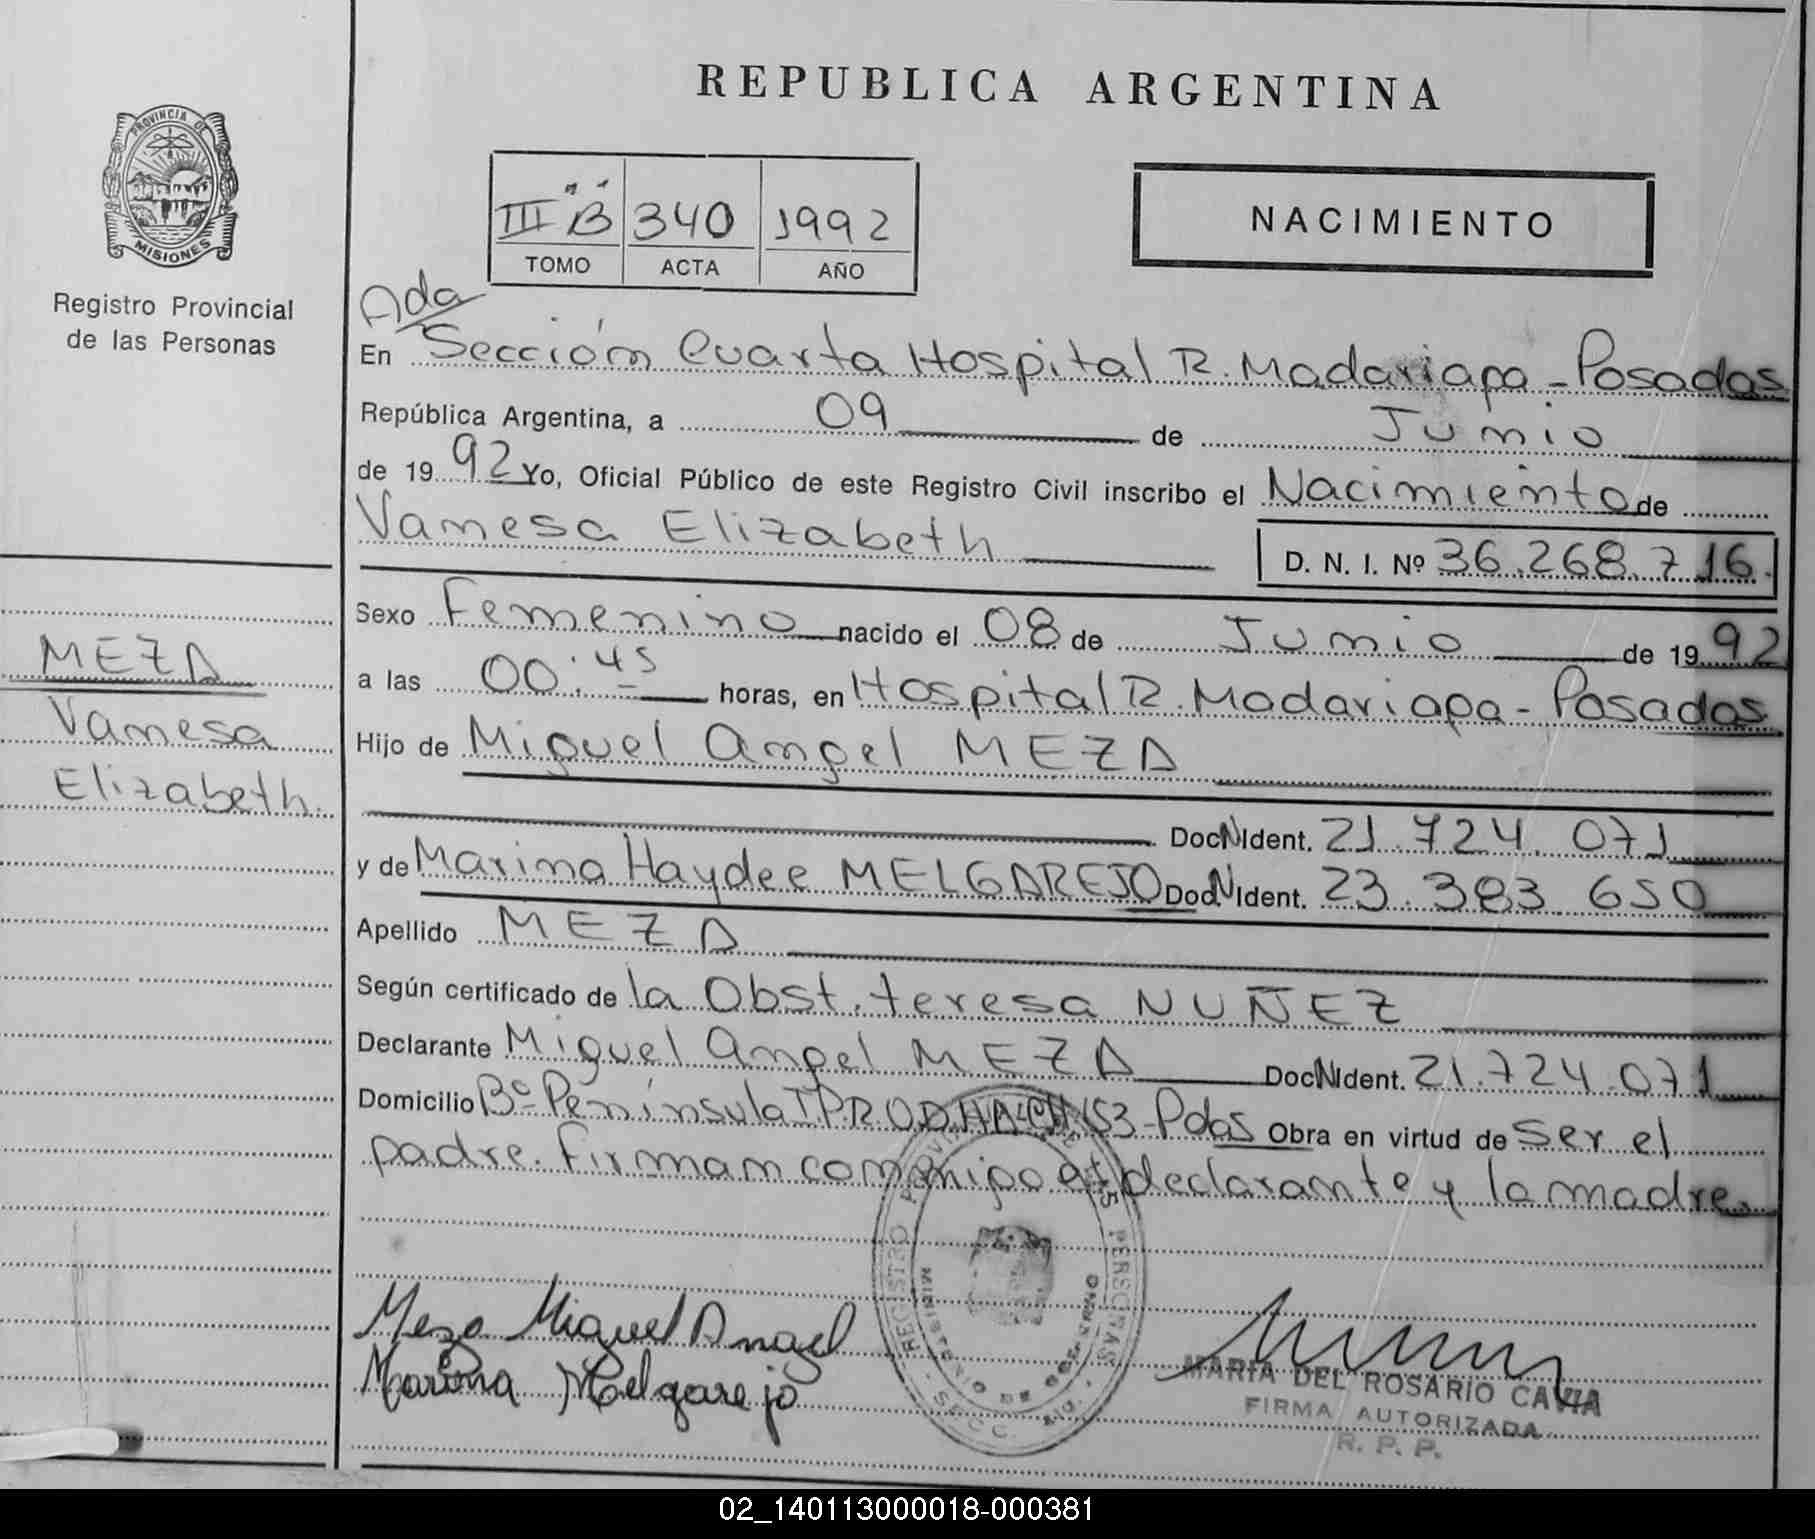 REPUBLICA ARGENTINA
PROVINCIA DE
MISIONES
Registro Provincial
de las Personas
III "B" 340 1992
TOMO ACTA AÑO
NACIMIENTO
Ada
En Sección Cuarta Hospital R. Madariaga - Posadas
República Argentina, a 09 de Junio
de 19 92 Yo, Oficial Público de este Registro Civil inscribo el Nacimiento de
Vanesa Elizabeth
D. N. I. Nº 36.268.716.
Sexo Femenino nacido el 08 de Junio de 19 92
a las 00:45 horas, en Hospital R. Madariaga - Posadas
Hijo de Miguel Angel MEZA
Doc N Ident. 21.724.071
y de Marina Haydee MELGAREJO Doc N Ident. 23.383.650
Apellido MEZA
Según certificado de la Obst. teresa NUÑEZ
Declarante Miguel Angel MEZA Doc N Ident. 21.724.071
Domicilio Bº Península IPRODHA 153 - Pdas Obra en virtud de ser el
padre. Firman conmigo el declarante y la madre.
MEZA
Vanesa
Elizabeth.
Meza Miguel Angel
Marina Melgarejo
REGISTRO PERSONAS
MINISTERIO DE GOBIERNO
MARIA DEL ROSARIO CAVIA
FIRMA AUTORIZADA
R. P. P.
02_140113000018-000381